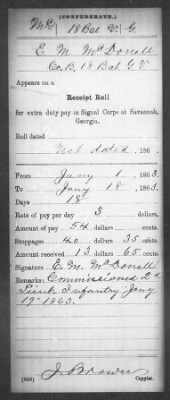 (CONFEDERATE.)
Mc 18 Bat. V. G.
E. M. McDonell
Co. B, 18 Bat. G. V.
Appears on a
Receipt Roll
for extra duty pay in Signal Corps at Savannah,
Georgia.
Roll dated
Not dated, 186 .
From Jany 1, 1863.
To Jany 18, 1863.
Days 18
Rate of pay per day 3 dollars.
Amount of pay 54 dollars cents.
Stoppages 40 dollars 35 cents.
Amount received 13 dollars 65 cents.
Signature E. M. McDonell
Remarks: Commissioned 2d
Lieut. Infantry Jany
19th 1863.
Copyist.